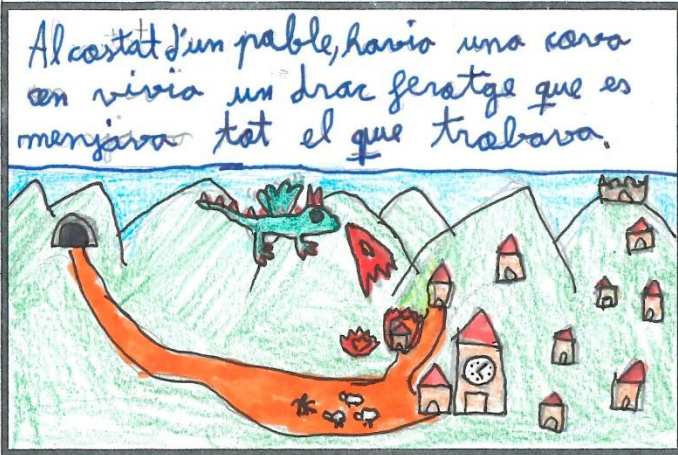 Al costat d'un poble, havia una cova
on vivia un drac feratge que es
menjava tot el que trobava.